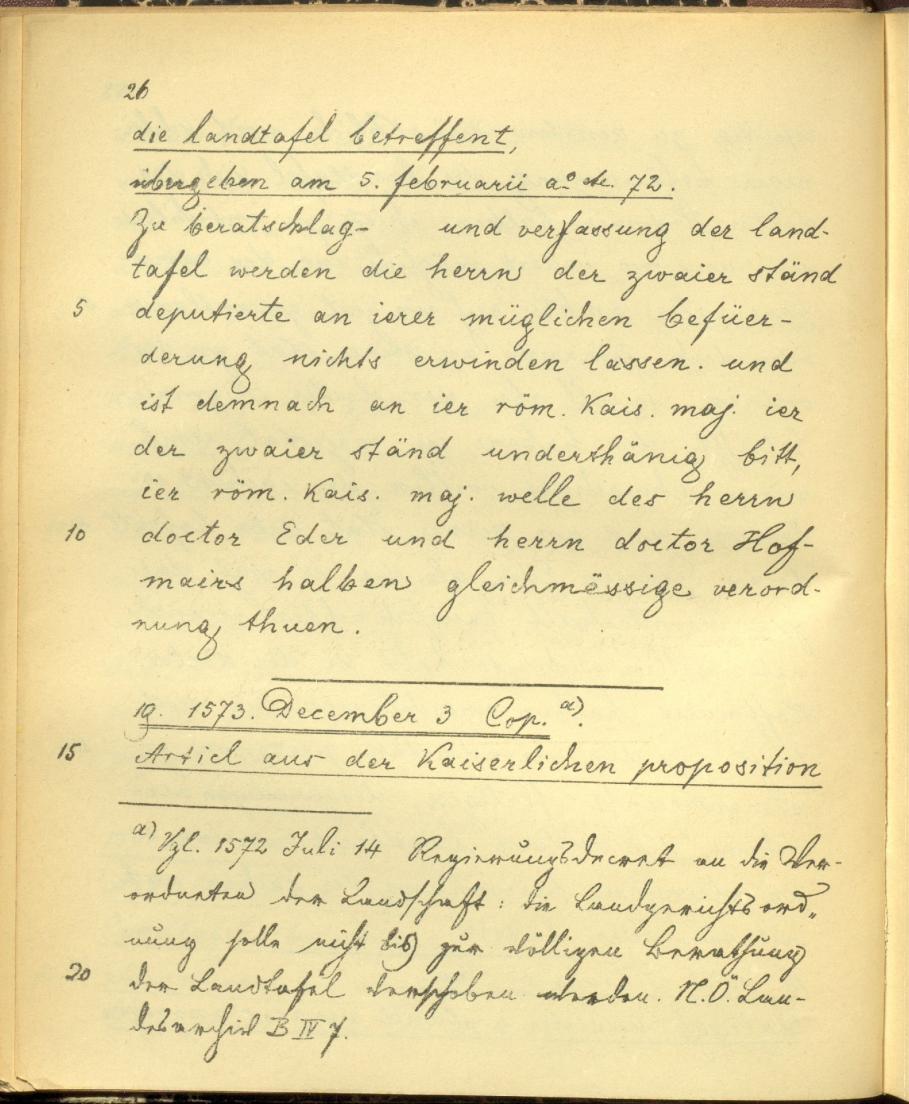 26
die landtafel betreffent,
übergeben am 5. februarii aº etc. 72.
Zu beratschlag- und verfassung der land-
tafel werden die herrn der zwaier ständ
5 deputierte an ierer müglichen befüer-
derung nichts erwinden lassen. und
ist demnach an ier röm. Kais. maj. ier
der zwaier ständ underthänig bitt,
ier röm. Kais. maj. welle des herrn
10 doctor Eder und herrn doctor Hof-
mairs halben gleichmëssige verord-
nung thuen.
19. 1573. December 3 Cop. a).
15 Articl aus der Kaiserlichen proposition
a) Vgl. 1572 Juli 14 Regierungsdecret an die Ver-
ordneten der Landschaft: die Landgerichtsord-
nung solle nicht bis zur völligen Berathung
20 der Landtafel verschoben werden. N.Ö. Lan-
desarchiv B IV 7.